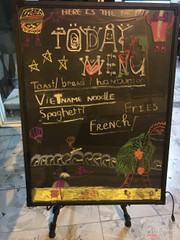 HERE IS THE
TODAY
MENU
Toast/bread/hamburger
VIETNAME NOODLE
Spaghetti
FRIES
FRENCH/